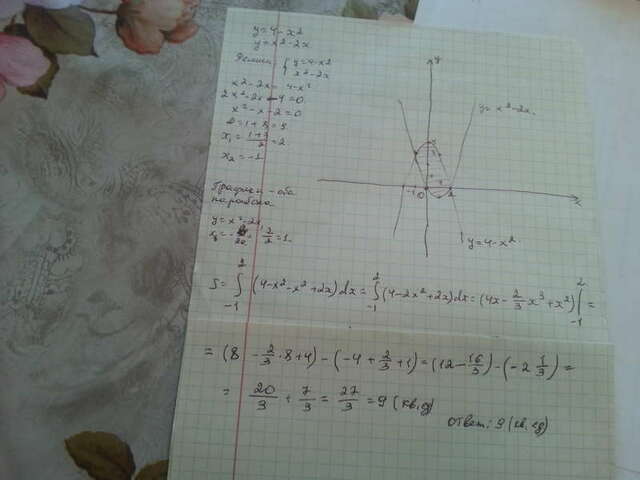 y=4-x²
y=x²-2x
Решим: { y=4-x²
x²-2x
x²-2x=4-x²
2x²-2x-4=0
x²-x-2=0
x₁= =2
x₂=-1
График - оба
парабола
y=x²-2x
=2/2=1
y
y=x²-2x.
-1 0 2
x
y=4-x²
S=∫₋₁² (4-x²-x²+2x)dx=∫₋₁² (4-2x²+2x)dx=(4x-2/3x³+x²)|₋₁²=
=(8-2/3·8+4)-(-4+2/3+1)=(12-16/3)-(-2 1/3)=
=20/3+7/3=27/3=9(кв.ед)
Ответ: 9(кв.ед)